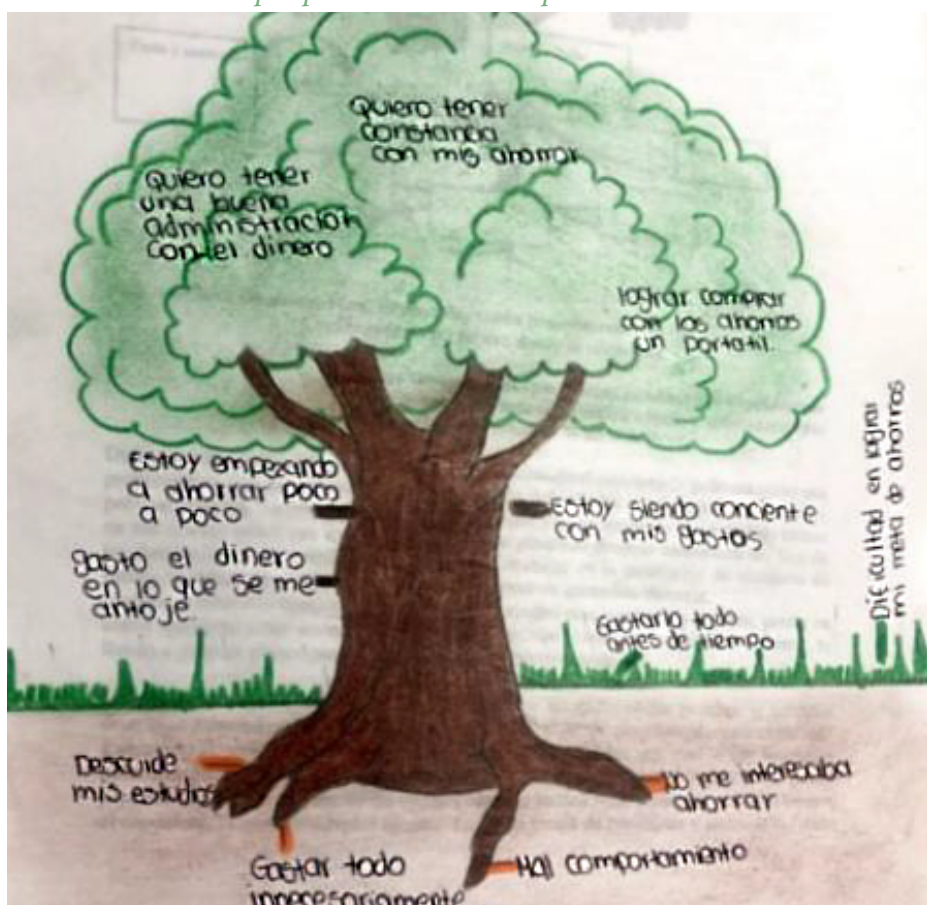 Quiero tener
constancia
con mis ahorrar
quiero tener
una buena
administración
con el dinero
lograr comprar
con los ahorros
un portatil.
Estoy empezando
a ahorrar poco
a poco
Estoy siendo conciente
con mis gastos
gasto el dinero
en lo que se me
antoje.
Dificultad en lograr
mi meta de ahorros
Gastarlo todo
antes de tiempo
Descuide
mis estudios
No me interesaba
ahorrar
Gastar todo
innecesariamente
Mal comportamiento